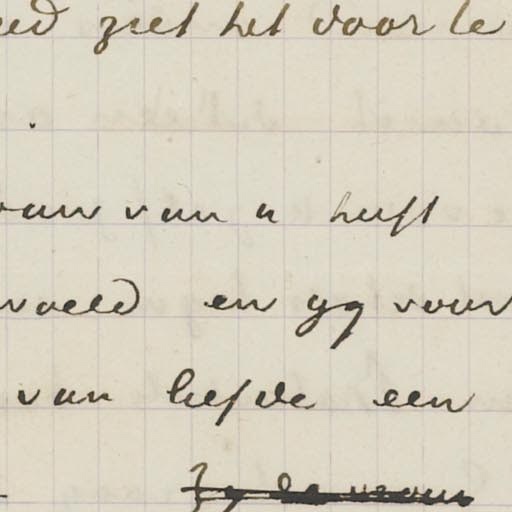 ziet het door te
van u heeft
voeld en gy voor
van liefde een
Zy de vrouw